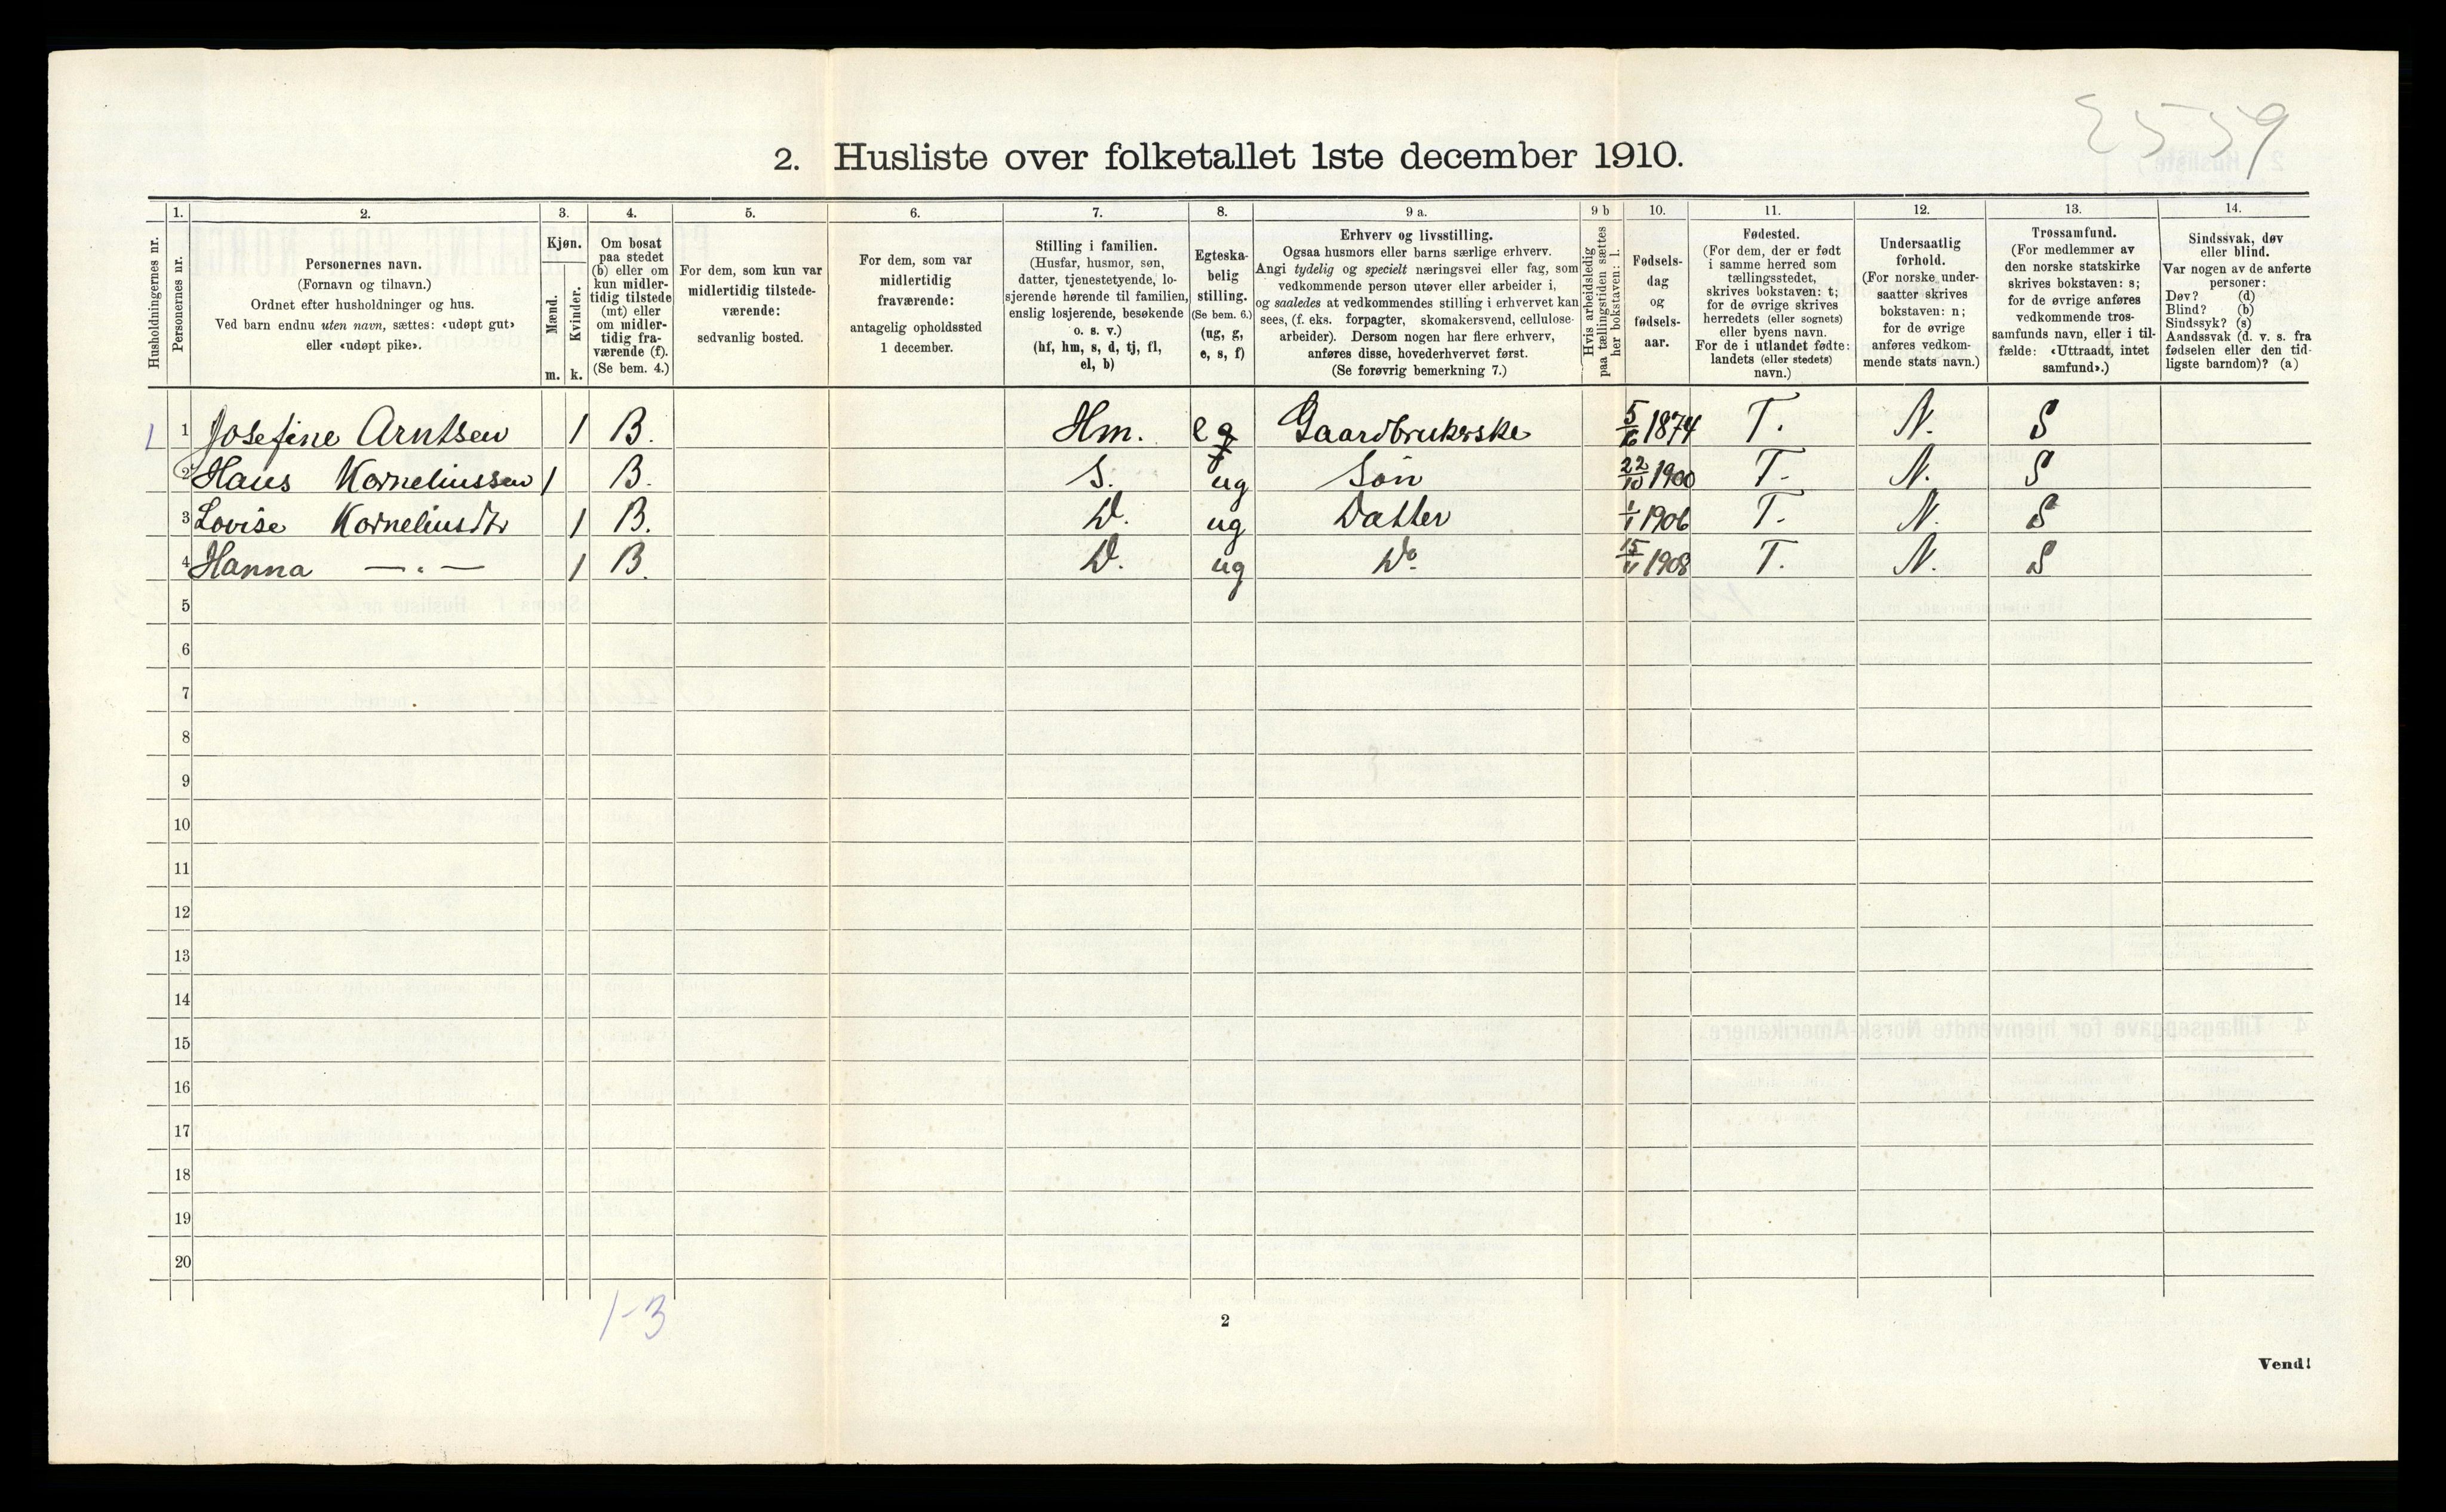 2559
2. Husliste over folketallet 1ste december 1910.
Husholdningernes nr.
1.
Personernes nr.
2.
Personernes navn.
(Fornavn og tilnavn.)
Ordnet efter husholdninger og hus.
Ved barn endnu uten navn, sættes: «udøpt gut»
eller «udøpt pike».
3.
Kjøn.
Mænd.
Kvinder.
m. k.
4.
Om bosat
paa stedet
(b) eller om
kun midler-
tidig tilstede
(mt) eller
om midler-
tidig fra-
værende (f).
(Se bem. 4.)
5.
For dem, som kun var
midlertidig tilstede-
værende:
sedvanlig bosted.
6.
For dem, som var
midlertidig
fraværende:
antagelig opholdssted
1 december.
7.
Stilling i familien.
(Husfar, husmor, søn,
datter, tjenestetyende, lo-
sjerende hørende til familien,
enslig losjerende, besøkende
o. s. v.)
(hf, hm, s, d, tj, fl,
el, b)
8.
Egteska-
belig
stilling.
(Se bem. 6.)
(ug, g,
e, s, f)
9 a.
Erhverv og livsstilling.
Ogsaa husmors eller barns særlige erhverv.
Angi tydelig og specielt næringsvei eller fag, som
vedkommende person utøver eller arbeider i,
og saaledes at vedkommendes stilling i erhvervet kan
sees, (f. eks. forpagter, skomakersvend, cellulose-
arbeider). Dersom nogen har flere erhverv,
anføres disse, hovederhvervet først.
(Se forøvrig bemerkning 7.)
9 b
Hvis arbeidsledig
paa tællingstiden sættes
her bokstaven: l.
10.
Fødsels-
dag
og
fødsels-
aar.
11.
Fødested.
(For dem, der er født
i samme herred som
tællingsstedet,
skrives bokstaven: t;
for de øvrige skrives
herredets (eller sognets)
eller byens navn.
For de i utlandet fødte:
landets (eller stedets)
navn.)
12.
Undersaatlig
forhold.
(For norske under-
saatter skrives
bokstaven: n;
for de øvrige
anføres vedkom-
mende stats navn.)
13.
Trossamfund.
(For medlemmer av
den norske statskirke
skrives bokstaven: s;
for de øvrige anføres
vedkommende tros-
samfunds navn, eller i til-
fælde: «Uttraadt, intet
samfund».)
14.
Sindssvak, døv
eller blind.
Var nogen av de anførte
personer:
Døv? (d)
Blind? (b)
Sindssyk? (s)
Aandssvak (d. v. s. fra
fødselen eller den tid-
ligste barndom)? (a)
1 1 Josefine Arntsen 1 B. Hm. e Gaardbrukerske 5/6 1874 T. N. S
2 Hans Korneliussen 1 B. S. ug Søn 22/10 1900 T. N. S
3 Lovise Korneliusdtr 1 B. D. ug Datter 1/1 1906 T. N. S
4 Hanna — „ — 1 B. D. ug Do 15/11 1908 T. N. S
5
6
7
8
9
10
11
12
13
14
15
16
17
18
19
20
1-3
2
Vend!